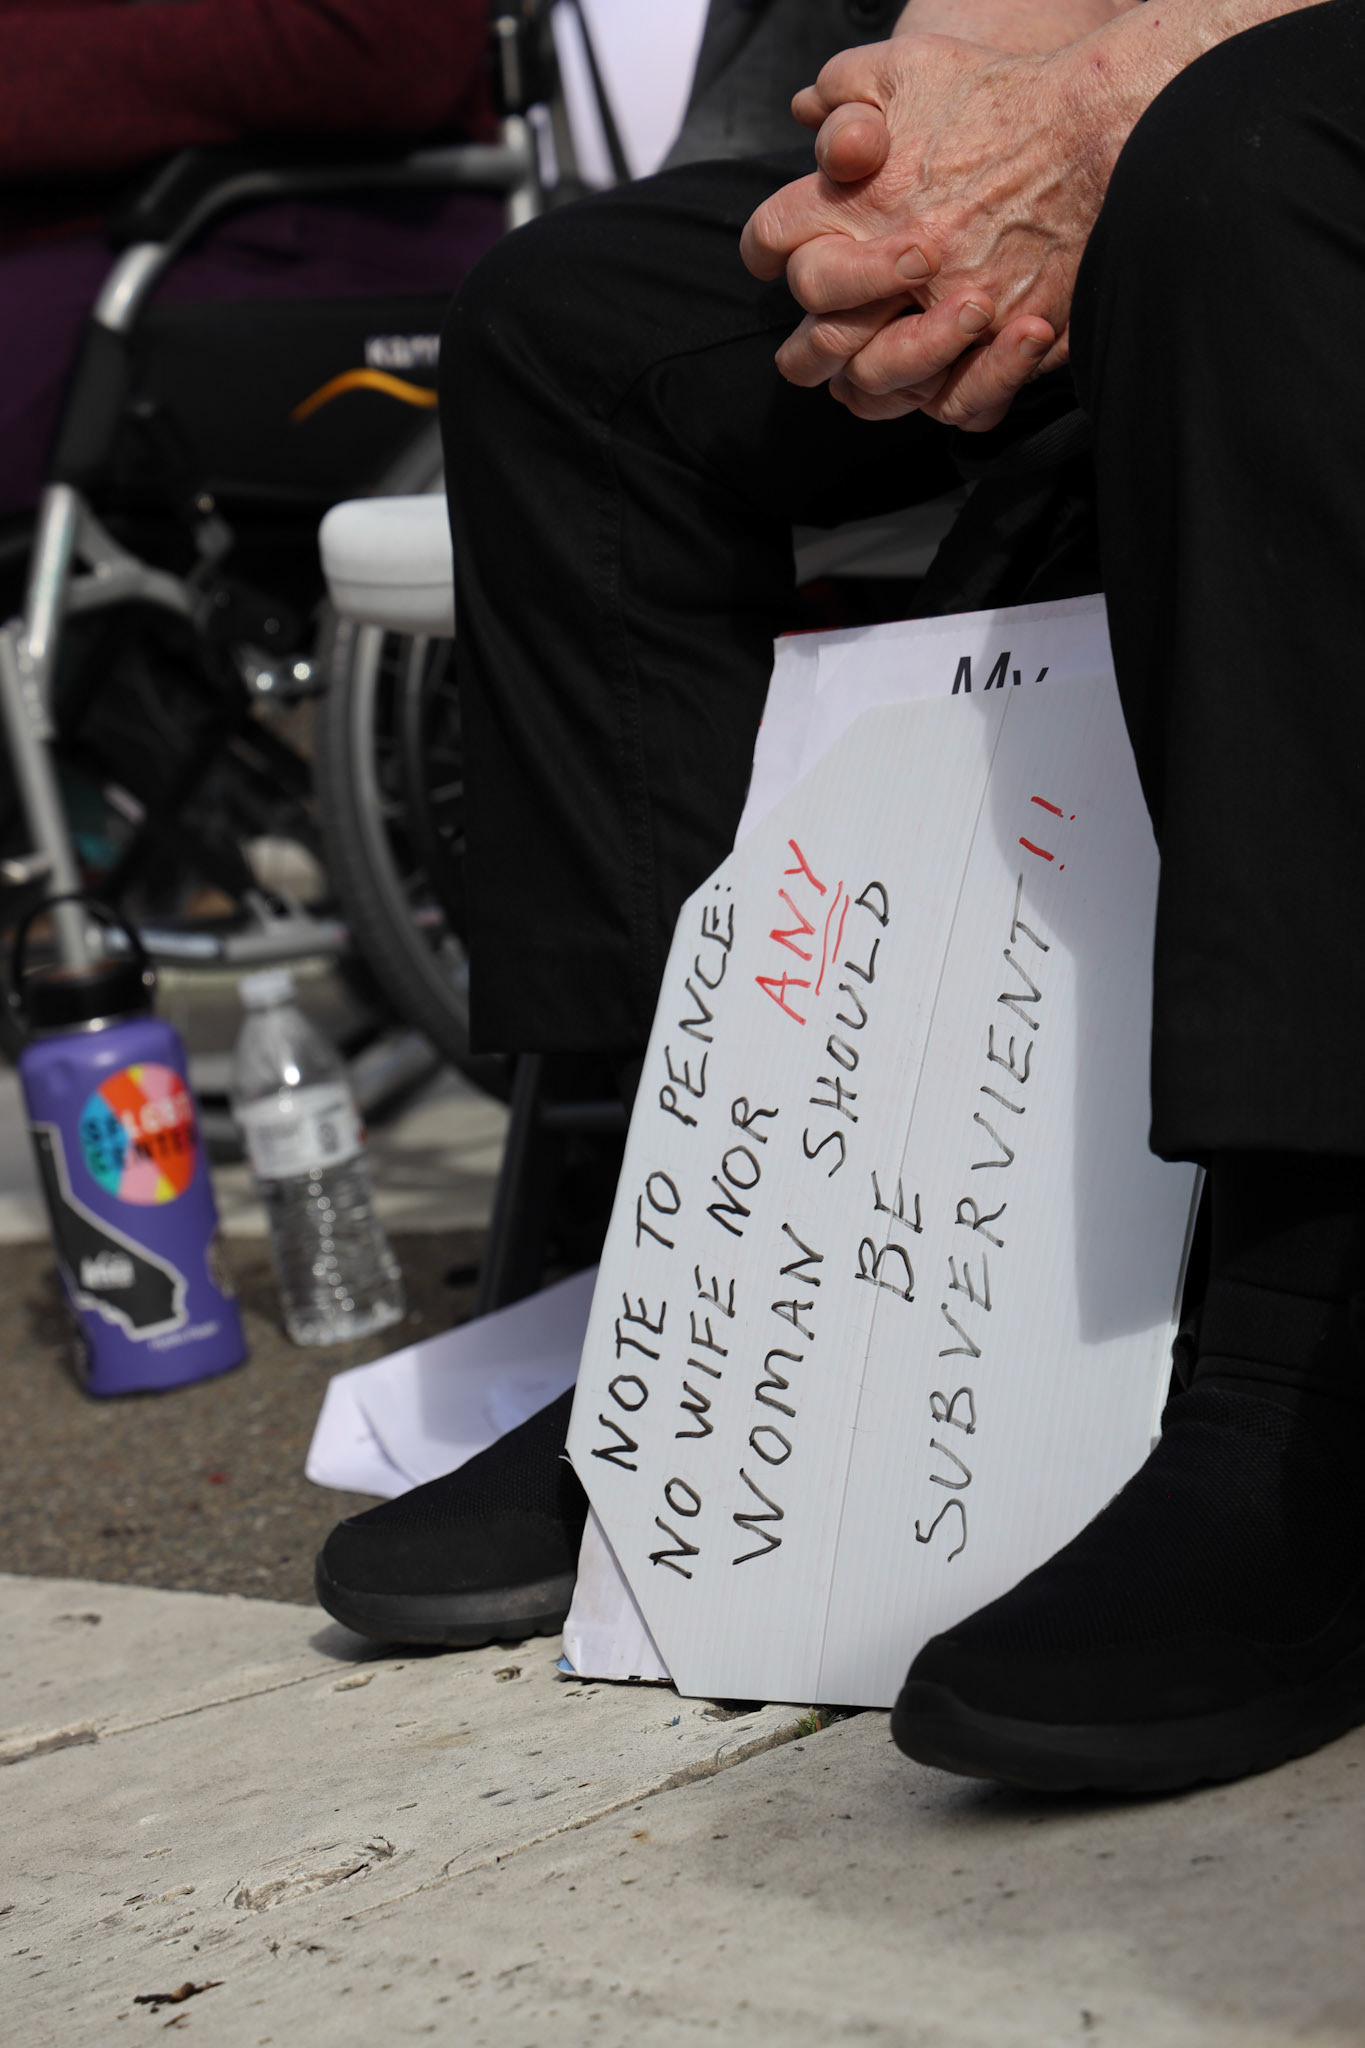 NOTE TO PENCE:
NO WIFE NOR ANY
WOMAN SHOULD
BE
SUBVERVIENT!!
My
SF LGBT
CENTER